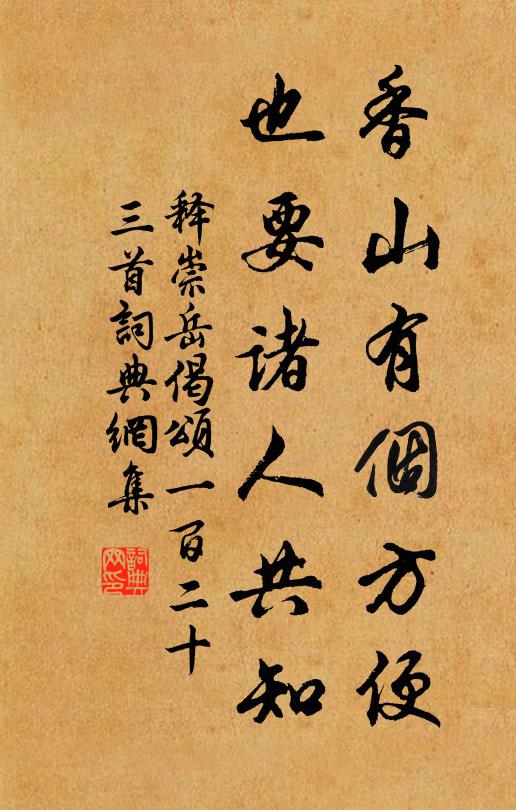 香山有個方便
也要诸人共知
释崇岳偈頌一百二十
三首詞典網集
詞典
网印